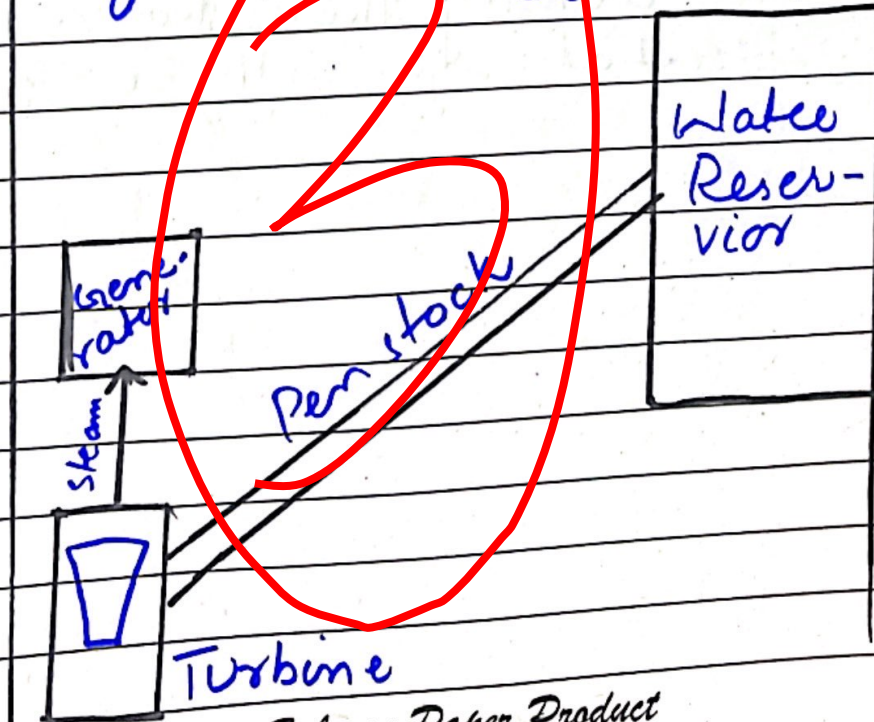 3
Water
Reser-
vior
Gene-
rator
Pen stock
Steam
Turbine
Paper Product